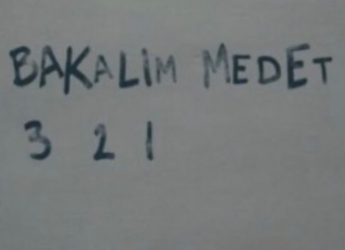 BAKALIM MEDET
3 2 1